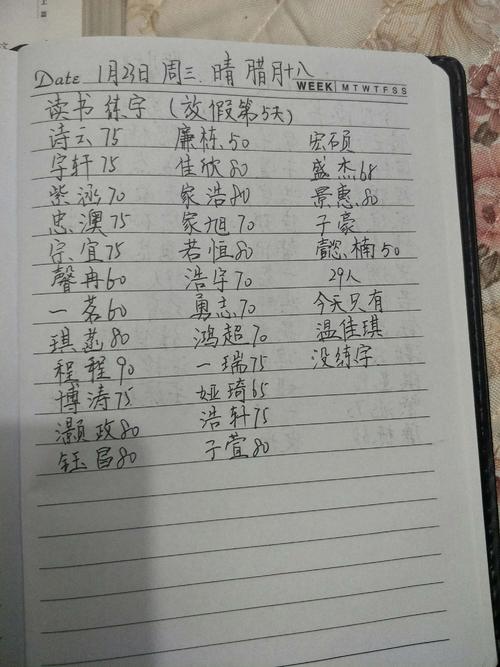 Date 1月23日 周三. 晴 腊月十八
WEEK M T W T F S S
读书 练字 (放假第5天)
诗云 75 廉栋 50 宏硕
宇轩 75 佳欣 80 盛杰 68
紫涵 70 家浩 80 景惠 80
忠澳 75 家旭 70 子豪
宗宜 75 若恒 80 懿楠 50
馨冉 60 浩宇 70 29人
一茗 60 勇志 70 今天只有
琪菡 80 鸿超 70 温佳琪
程程 90 一瑞 75 没练字
博涛 75 娅琦 65
灏政 80 浩轩 75
钰昌 80 子萱 80